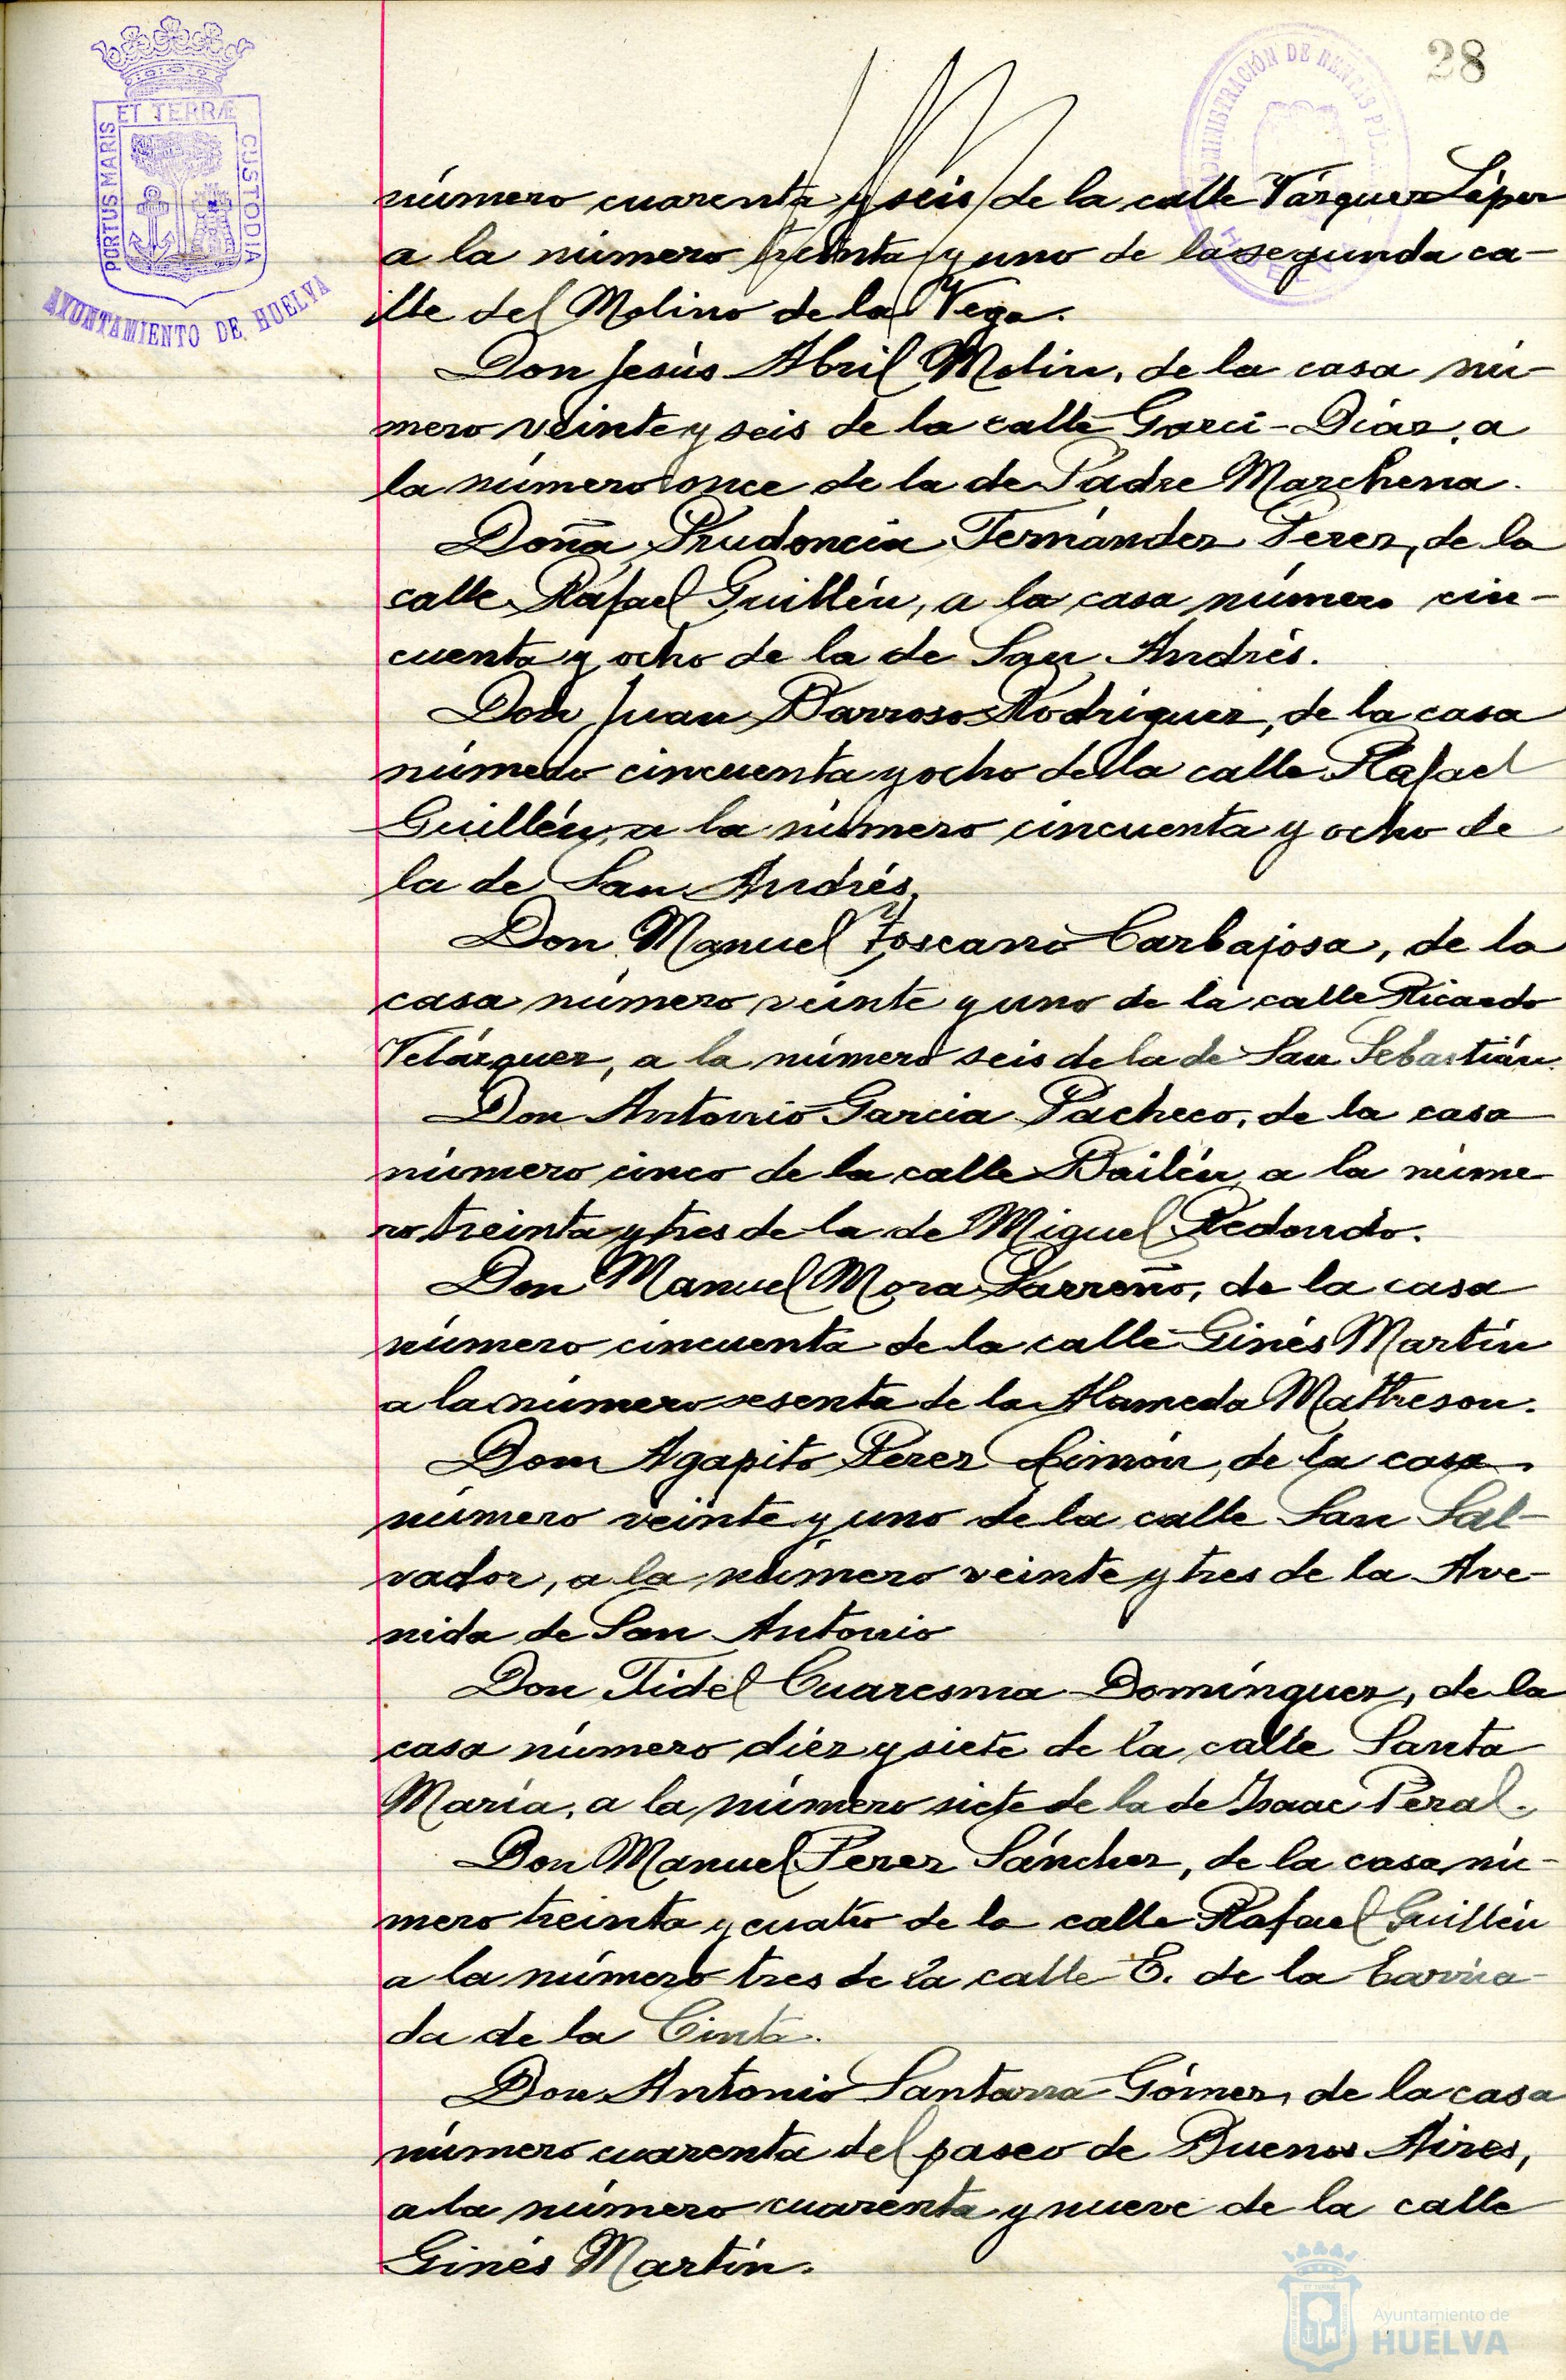 28
ET TERRÆ
PORTUS MARIS
CUSTODIA
AYUNTAMIENTO DE HUELVA
ADMINISTRACIÓN DE RENTAS
HUELVA
número cuarenta y seis de la calle Vázquez López
a la número treinta y uno de la segunda ca-
lle del Molino de la Vega.
Don Jesús Abril Molin, de la casa nú-
mero veinte y seis de la calle Garci-Díaz, a
la número once de la de Padre Marchena.
Doña Prudencia Fernández Perez, de la
calle Rafael Guillén, a la casa número cin-
cuenta y ocho de la de San Andrés.
Don Juan Barroso Rodríguez, de la casa
número cincuenta y ocho de la calle Rafael
Guillén, a la número cincuenta y ocho de
la de San Andrés.
Don Manuel Toscano Carbajosa, de la
casa número veinte y uno de la calle Ricardo
Velázquez, a la número seis de la de San Sebastián.
Don Antonio Garcia Pacheco, de la casa
número cinco de la calle Bailén a la núme
ro treinta y tres de la de Miguel Redondo.
Don Manuel Mora Parreño, de la casa
número cincuenta de la calle Ginés Martín
a la número sesenta de la Alameda Mattheson.
Don Agapito Perez Limón, de la casa
número veinte y uno de la calle San Sal-
vador, a la número veinte y tres de la Ave-
nida de San Antonio
Don Fidel Cuaresma Domínguez, de la
casa número diez y siete de la calle Santa
María, a la número siete de la de Isaac Peral.
Don Manuel Perez Sánchez, de la casa nú-
mero treinta y cuatro de la calle Rafael Guillén
a la número tres de la calle E. de la barria-
da de la Cinta.
Don Antonio Santana Gómez, de la casa
número cuarenta del paseo de Buenos Aires,
a la número cuarenta y nueve de la calle
Ginés Martín.
Ayuntamiento de
HUELVA